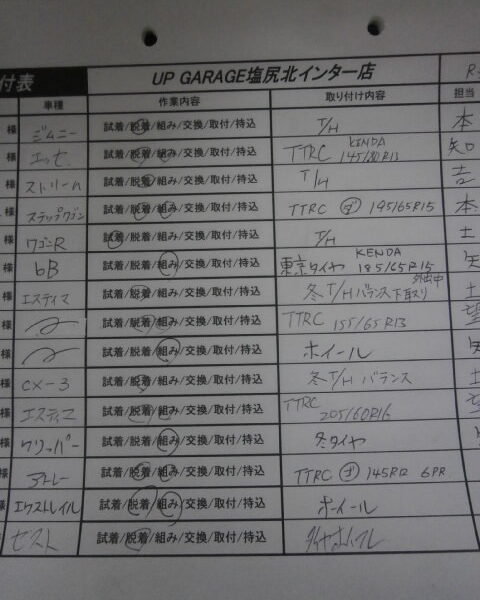 付表 UP GARAGE塩尻北インター店
車種 作業内容 取り付け内容 担当
様 ジムニー 試着/脱着/組み/交換/取付/持込 T/H 本
様 エッセ 試着/脱着/組み/交換/取付/持込 TTRC KENDA 145/80R13 矢口
様 ストリーム 試着/脱着/組み/交換/取付/持込 T/H 吉
様 ステップワゴン 試着/脱着/組み/交換/取付/持込 TTRC 195/65R15 本
様 ワゴンR 試着/脱着/組み/交換/取付/持込 T/H 土
様 bB 試着/脱着/組み/交換/取付/持込 東京タイヤ KENDA 185/65R15 矢
様 エスティマ 試着/脱着/組み/交換/取付/持込 冬T/H バランス 下取り 土
様 試着/脱着/組み/交換/取付/持込 TTRC 155/65R13 望
様 試着/脱着/組み/交換/取付/持込 ホイール 矢
様 CX-3 試着/脱着/組み/交換/取付/持込 冬T/H バランス 土
様 エスティマ 試着/脱着/組み/交換/取付/持込 TTRC 205/60R16 望
様 クリッパー 試着/脱着/組み/交換/取付/持込 冬タイヤ
様 アトレー 試着/脱着/組み/交換/取付/持込 TTRC 145R12 6PR
様 エクストレイル 試着/脱着/組み/交換/取付/持込 ホイール
様 ゼスト 試着/脱着/組み/交換/取付/持込 タイヤホイール